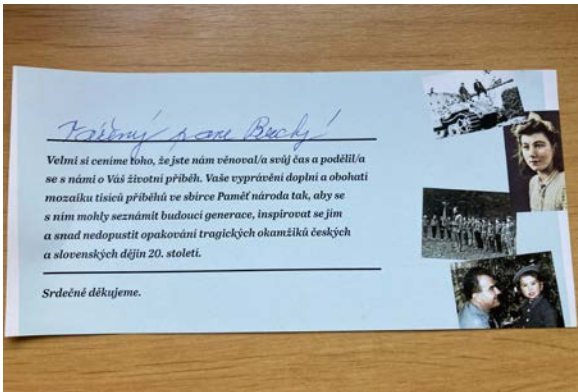 Vážený pane Bechý
Velmi si ceníme toho, že jste nám věnoval/a svůj čas a podělil/a
se s námi o Váš životní příběh. Vaše vyprávění doplní a obohatí
mozaiku tisíců příběhů ve sbírce Paměť národa tak, aby se
s ním mohly seznámit budoucí generace, inspirovat se jím
a snad nedopustit opakování tragických okamžiků českých
a slovenských dějin 20. století.
Srdečně děkujeme.